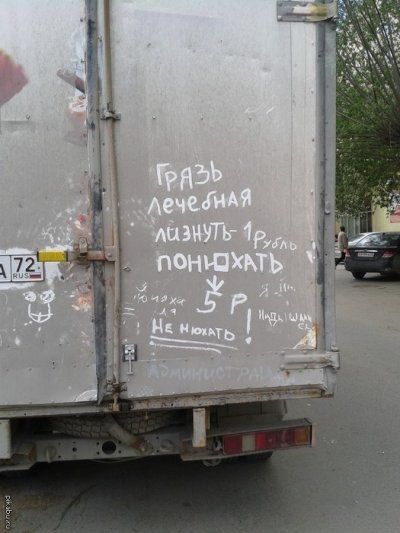 ГРЯЗЬ
лечебная
лизнуть-1 рубль
понюхать
5 р
Не нюхать!
АДМИНИСТРАЦ
А 72
RUS
pikabu.ru